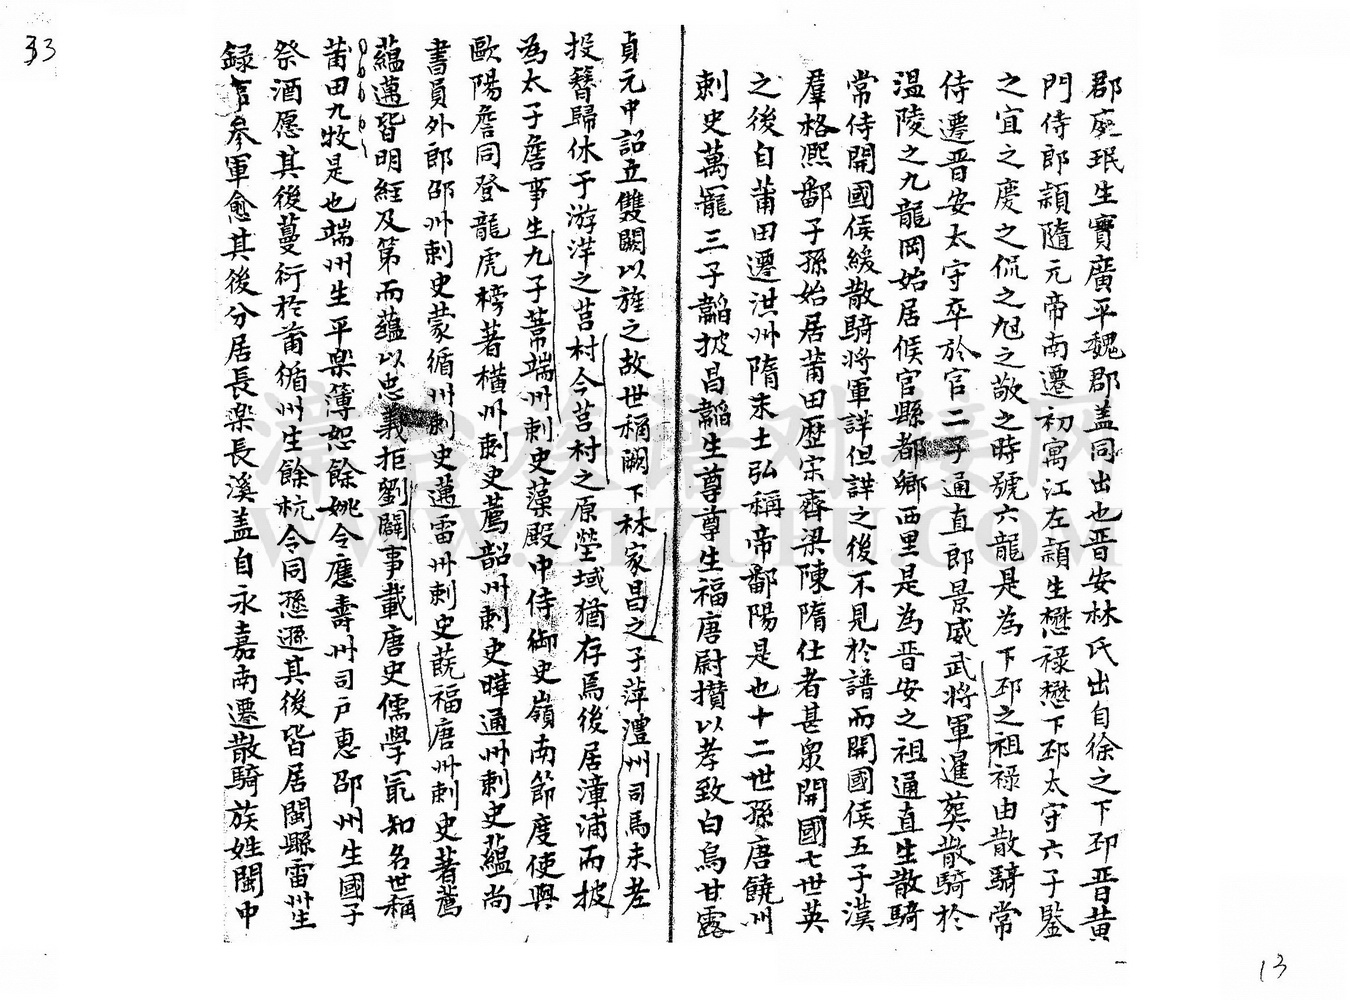 33
郡廐珉生寳廣平魏郡盖同出也晋安林氏出自徐之下邳晋黄
門侍郎頴隨元帝南遷初寓江左頴生懋禄懋下邳太守六子鋻
之宜之慶之侃之旭之敬之時號六龍是為下邳之祖禄由散騎常
侍遷晋安太守卒於官二子通直郎景威武將軍暹葬散騎於
温陵之九龍岡始居候官縣都鄉西里是為晋安之祖通直生散騎
常侍開國侯緩散騎將軍詳但詳之後不見於譜而開國侯五子漢
羣格凞鄱子孫始居莆田歷宋齊梁陳隋仕者甚衆開國七世英
之後自莆田遷洪州隋末士弘稱帝鄱陽是也十二世孫唐饒州
刺史萬寵三子韜披昌韜生尊尊生福唐尉攅以孝致白烏甘露
貞元中詔立雙闕以旌之故世稱闕下林家昌之子萍澧州司馬未老
投簮歸休于游洋之莒村今莒村之原塋域猶存焉後居漳浦而披
為太子詹事生九子葦端州刺史藻殿中侍御史嶺南節度使與
歐陽詹同登龍虎榜著横州刺史薦韶州刺史曄通州刺史蘊尚
書員外郎邵州刺史蒙循州刺史邁雷州刺史蔇福唐州刺史著薦
蘊邁皆明經及第而蘊以忠義拒劉闢事載唐史儒學最知名世稱
莆田九牧是也端州生平樂簿恕餘姚令應壽州司户惠邵州生國子
祭酒愿其後蔓衍於莆循州生餘杭令同愻遜其後皆居閩縣雷州生
録事參軍愈其後分居長樂長溪盖自永嘉南遷散騎族姓閩中
13
漳台族谱对接网
WWW.ZTZUPU.COM